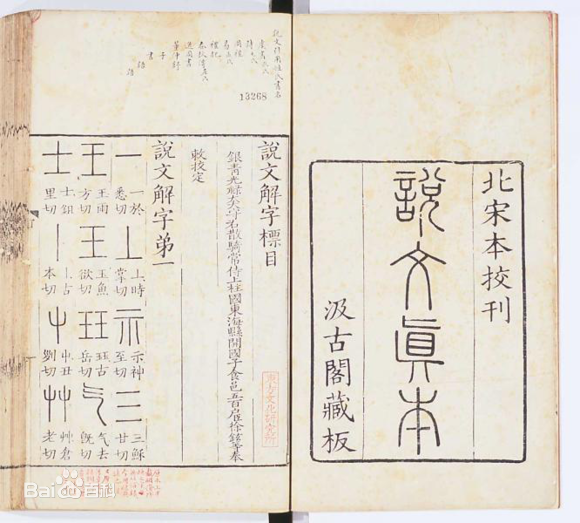 北宋本挍刊
說文眞本
汲古閣藏板
13268
說文解字標目
銀青光祿大夫守右散騎常侍上柱國東海縣開國子食邑五百戶臣徐鉉等奉
敕挍定
說文解字第一
一 一於悉切 丄 丄時掌切 示 示神至切 三 三穌甘切
王 王雨方切 王 玉魚欲切 玨 珏古岳切 气 气去旣切
士 士鉏里切 丨 丨古本切 屮 屮丑切 艸 艸倉老切
Bai百科